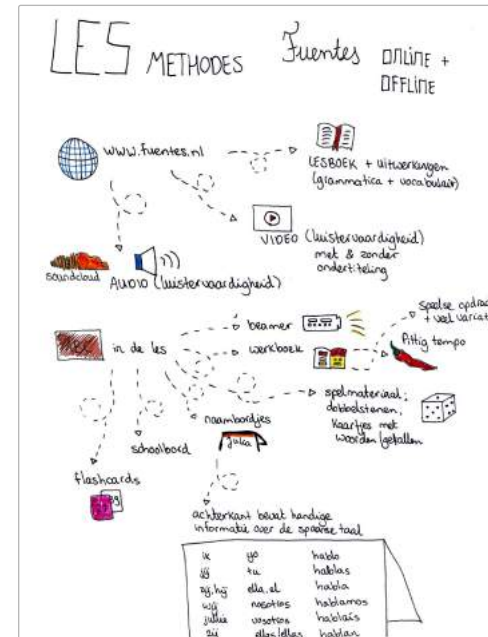 LES METHODES
Fuentes
ONLINE +
OFFLINE
www.fuentes.nl
LESBOEK + uitwerkingen
(grammatica + vocabulair)
VIDEO (luistervaardigheid)
met & zonder
ondertiteling
soundcloud
AUDIO (luistervaardigheid)
in de les
beamer
werkboek
spaalse opdrac
+ veel variat
Pittig tempo
spelmateriaal;
dobbelstenen,
kaartjes met
woorden/getallen
naambordjes
Julia
schoolbord
flashcards
achterkant bevat handige
informatie over de spaanse taal
ik yo hablo
jij tu hablas
zij, hij ella, el habla
wij nosotros hablamos
jullie vosotros hablaís
zij ellos/ellas hablan